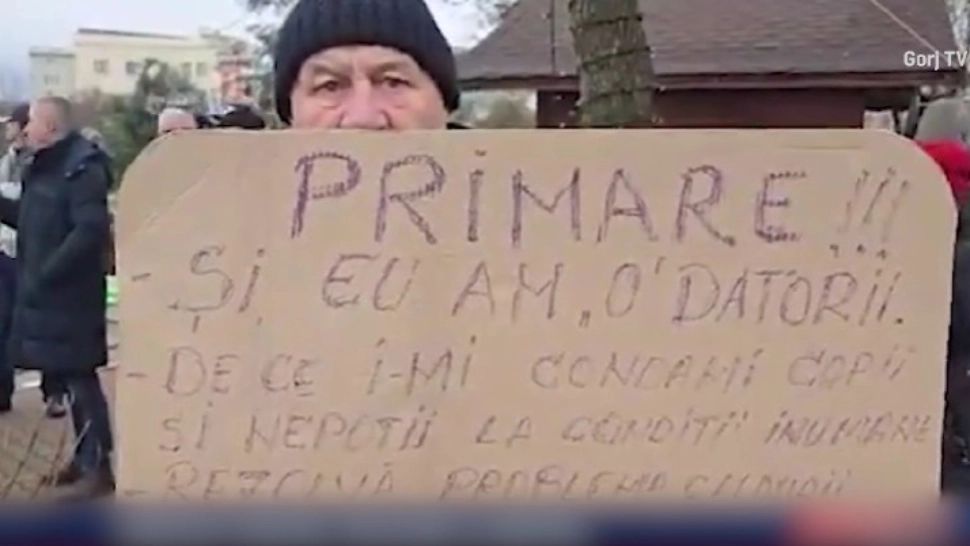 Gorj TV
PRIMARE !!!
- ȘI, EU AM, „O" DATORII.
- DE CE I-MI CONDAMI COPII
ȘI NEPOTII LA CONDITII INUMANE
- REZOLVĂ PROBLEMA